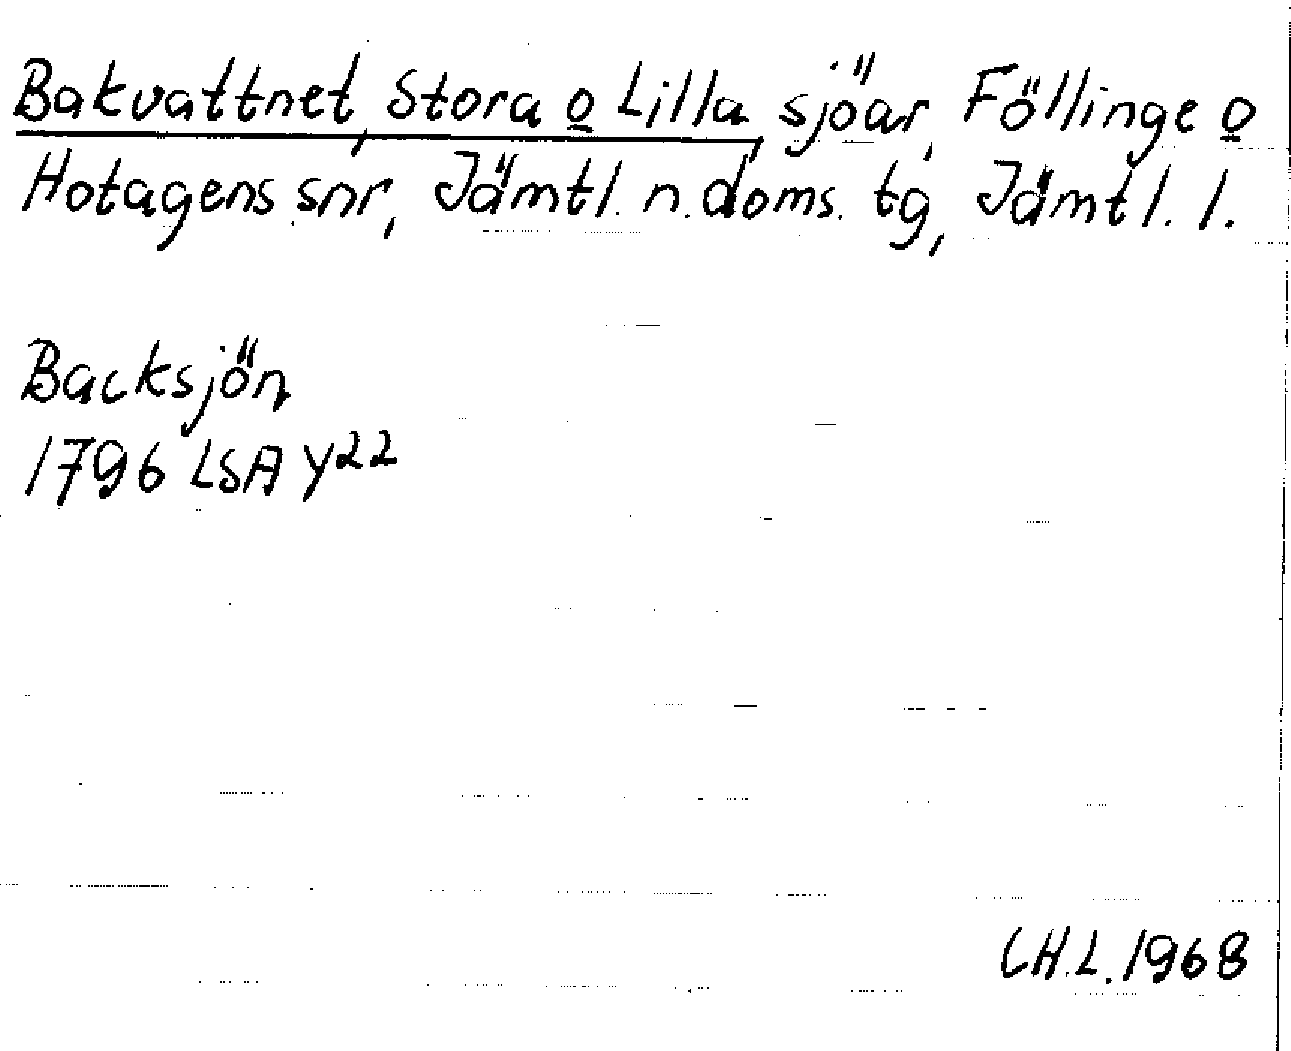 Bakvattnet, Stora o Lilla, sjöar, Föllinge o
Hotagens snr, Jämtl. n. doms. tg, Jämtl. l.
Backsjön
1796 LSA Y22
CH.L. 1968